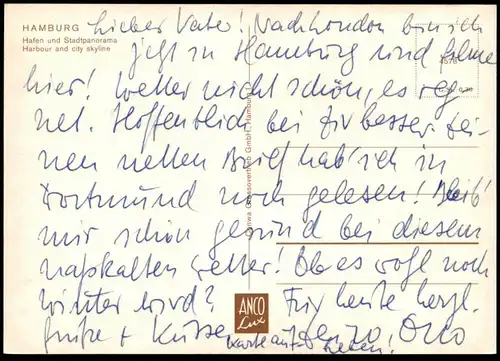 HAMBURG
Hafen und Stadtpanorama
Harbour and city skyline
4576
Lieber Vater! Nach London bin ich
jetzt in Hamburg und filme
hier! Wetter nicht schön, es reg
net. Hoffentlich bei Dir besser. Dei-
nen netten Brief hab' ich in
Dortmund noch gelesen! Bleib'
mir schön gesund bei diesem
naßkalten Wetter! Ob es wohl noch
Winter wird? Für heute herzl.
Grüße + Küsse Otto
Karte aufheben!
ANCO
Lux